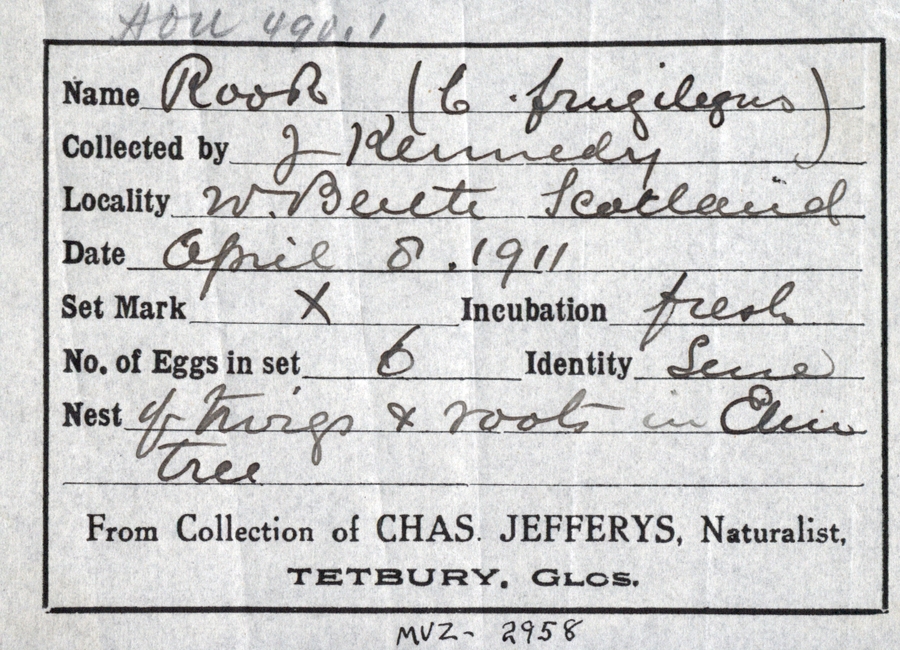 AOU 490.1
Name Rook (C. frugilegus)
Collected by J Kennedy
Locality W. Scotland
Date April 8. 1911
Set Mark X Incubation fresh
No. of Eggs in set 6 Identity Sure
Nest of twigs & roots in Elm
tree
From Collection of CHAS. JEFFERYS, Naturalist,
TETBURY, GLOS.
MVZ- 2958